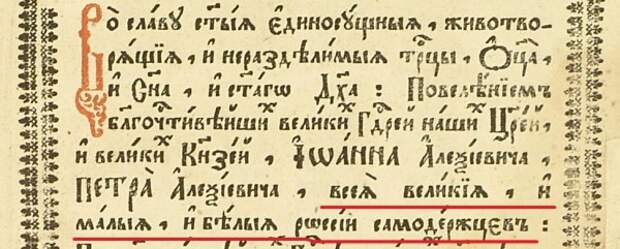 Во славу ст҃ы́ѧ є҆диносꙋ́щныѧ, животво-
рѧ́щїѧ, и҆ нераздѣли́мыѧ трⷪ҇цы, Ѻ҆ц҃а̀,
и҆ Сн҃а, и҆ ст҃а́гѡ Дх҃а : Повелѣ́нїемъ
бл҃гочⷭ҇ти́вѣйшиⷯ вели́киⷯ Гдⷭ҇рей на́шиⷯ Цр҃е́й,
и҆ вели́киⷯ Кнѧзе́й, І҆ѠА́ННА А҆леѯі́евича,
ПЕТРА̀ А҆леѯі́евича, всеѧ̀ вели́кїѧ, и҆
ма́лыѧ, и҆ бѣ́лыѧ рѡссі́й самоде́ржцевъ :